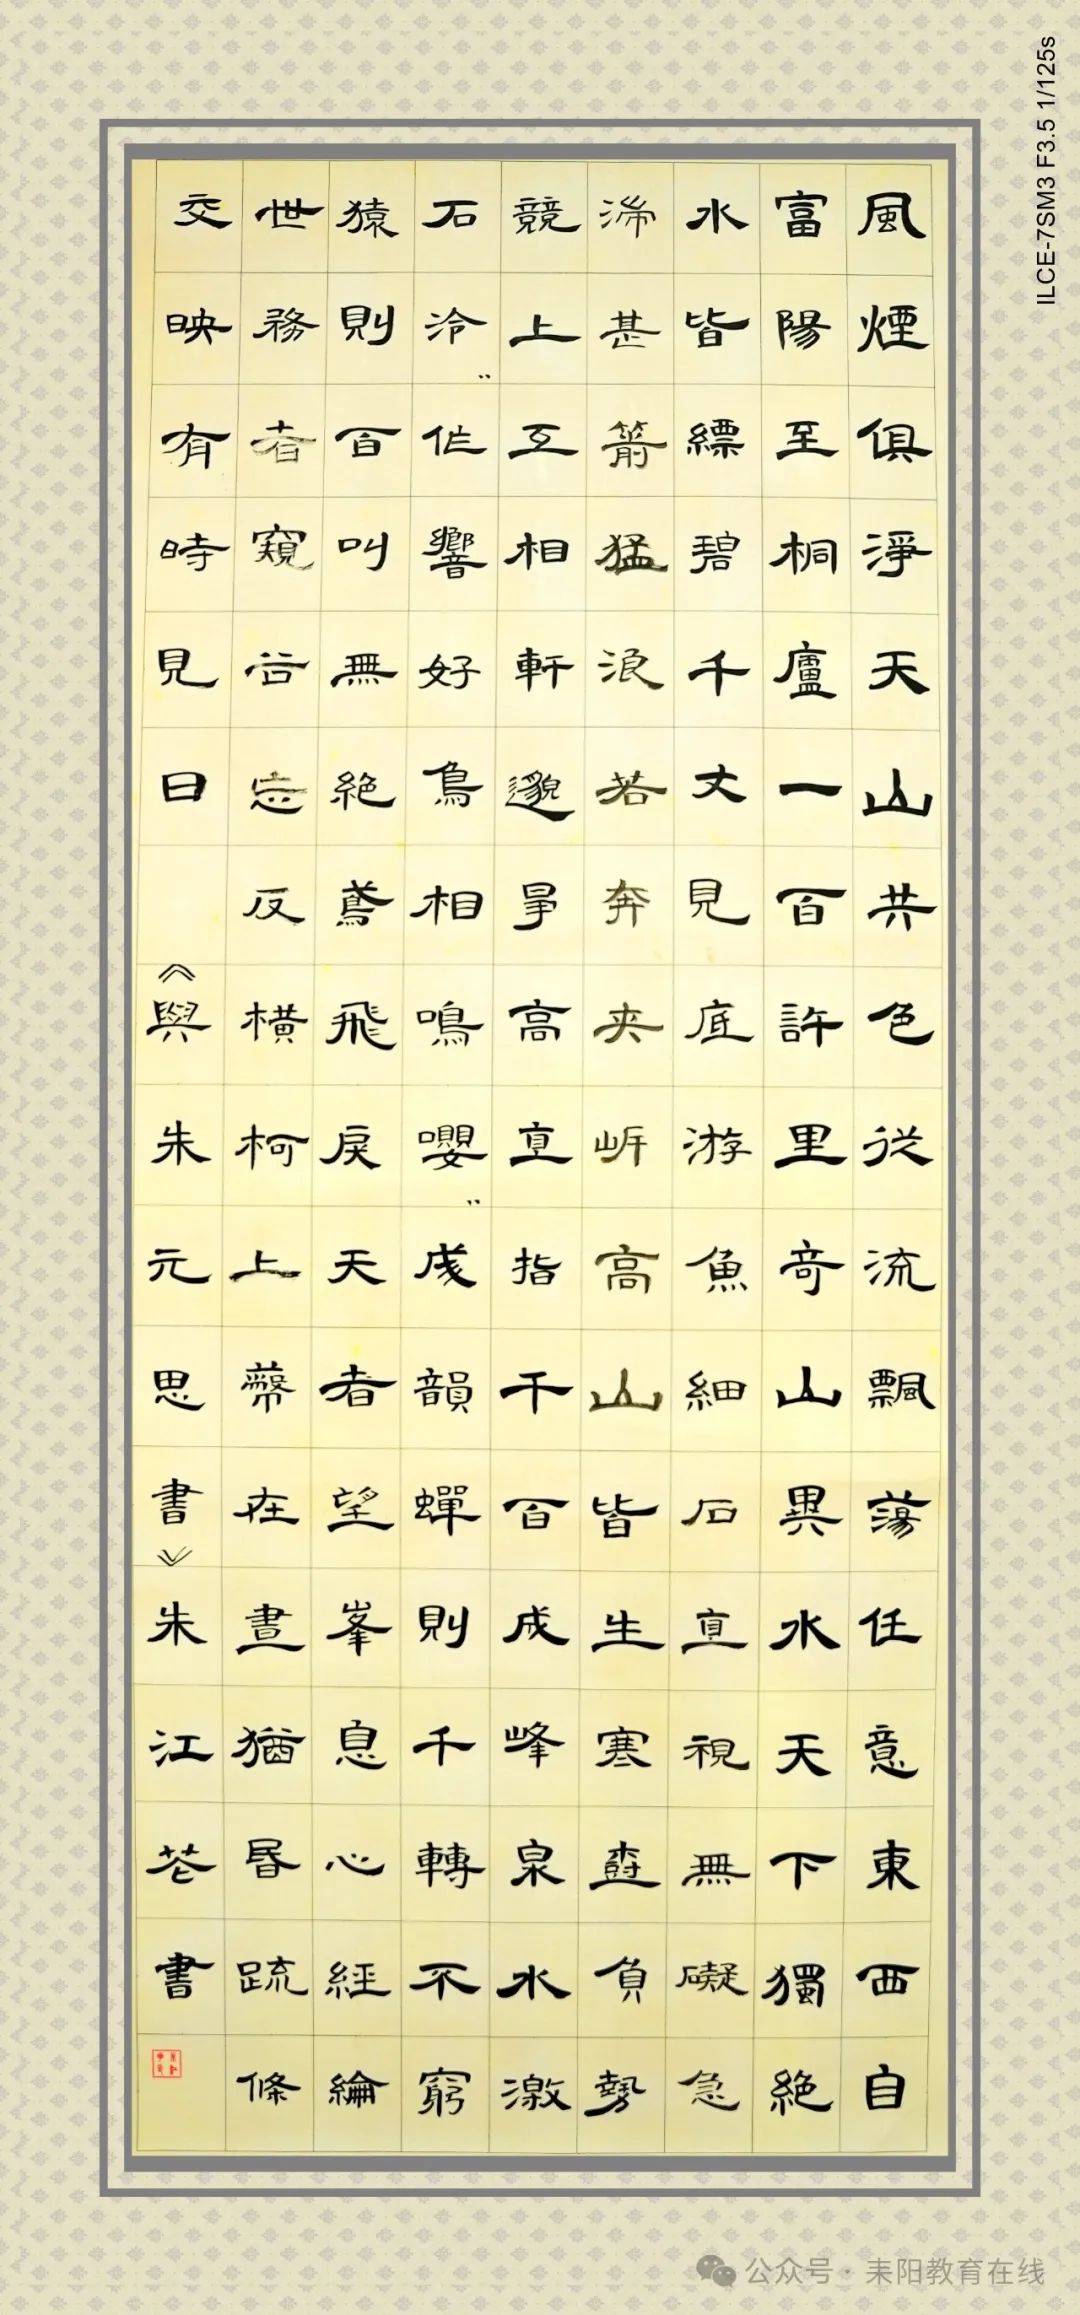 風煙俱淨天山共色從流飄蕩任意東西自
富陽至桐廬一百許里奇山異水天下獨絕
水皆縹碧千丈見底游魚細石直視無礙急
湍甚箭猛浪若奔夾岸高山皆生寒樹負勢
競上互相軒邈爭高直指千百成峰泉水激
石泠〃作響好鳥相鳴嚶〃成韻蟬則千轉不窮
猿則百叫無絕鳶飛戾天者望峯息心經綸
世務者窺谷忘反橫柯上蔽在晝猶昏疏條
交映有時見日 《與朱元思書》朱江花書
ILCE-7SM3 F3.5 1/125s
公众号 · 耒阳教育在线